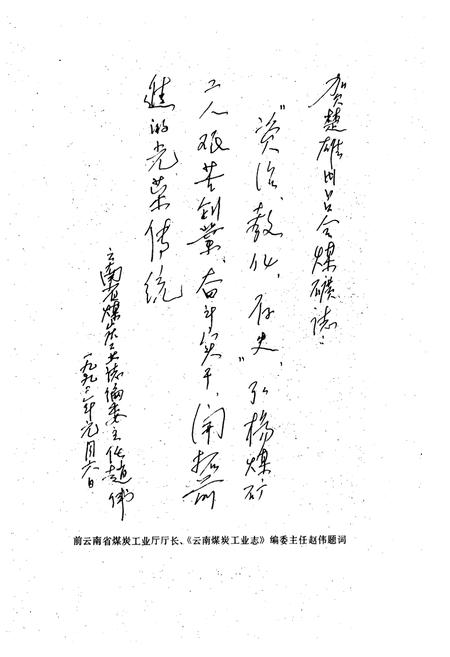 贺楚雄州吕合煤礦志：
“资治、教化、存史”，弘杨煤矿
工人艰苦创業、奋斗实干，開拓前
進的光荣傳统
云南省煤炭工业志编委主任趙伟
一九九二年元月六日
前云南省煤炭工业厅厅长、《云南煤炭工业志》编委主任赵伟题词